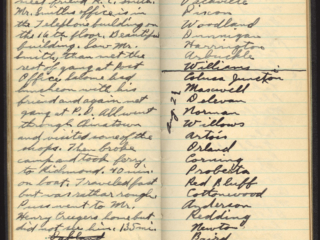 meet friend R. C. Smith.
Mr. Smiths office is in
the Telephone building on
the 16th floor. Beautiful
building. Saw Mr.
Smith, then met the
rest of gang at Post
Office. Salome had
luncheon with his
friend and again met
gang at P.O. All went
through Chinatown
and visited some of the
shops. Then broke
camp and took ferry
to Richmond. 40 min.
on boat. Traveled fast
but was rather rough.
Pures went to Mr.
Henry Creegers home but
did not see him. 135 mi.
Oakland
Vacaville
Dixon
Woodland
Dunnigan
Harrington
Arbuckle
Williams
Colusa Junction
Maxwell
Delevan
Norman
Willows
Artois
Orland
Corning
Proberta
Red Bluff
Cottonwood
Anderson
Redding
Newton
Baird
Aug 21